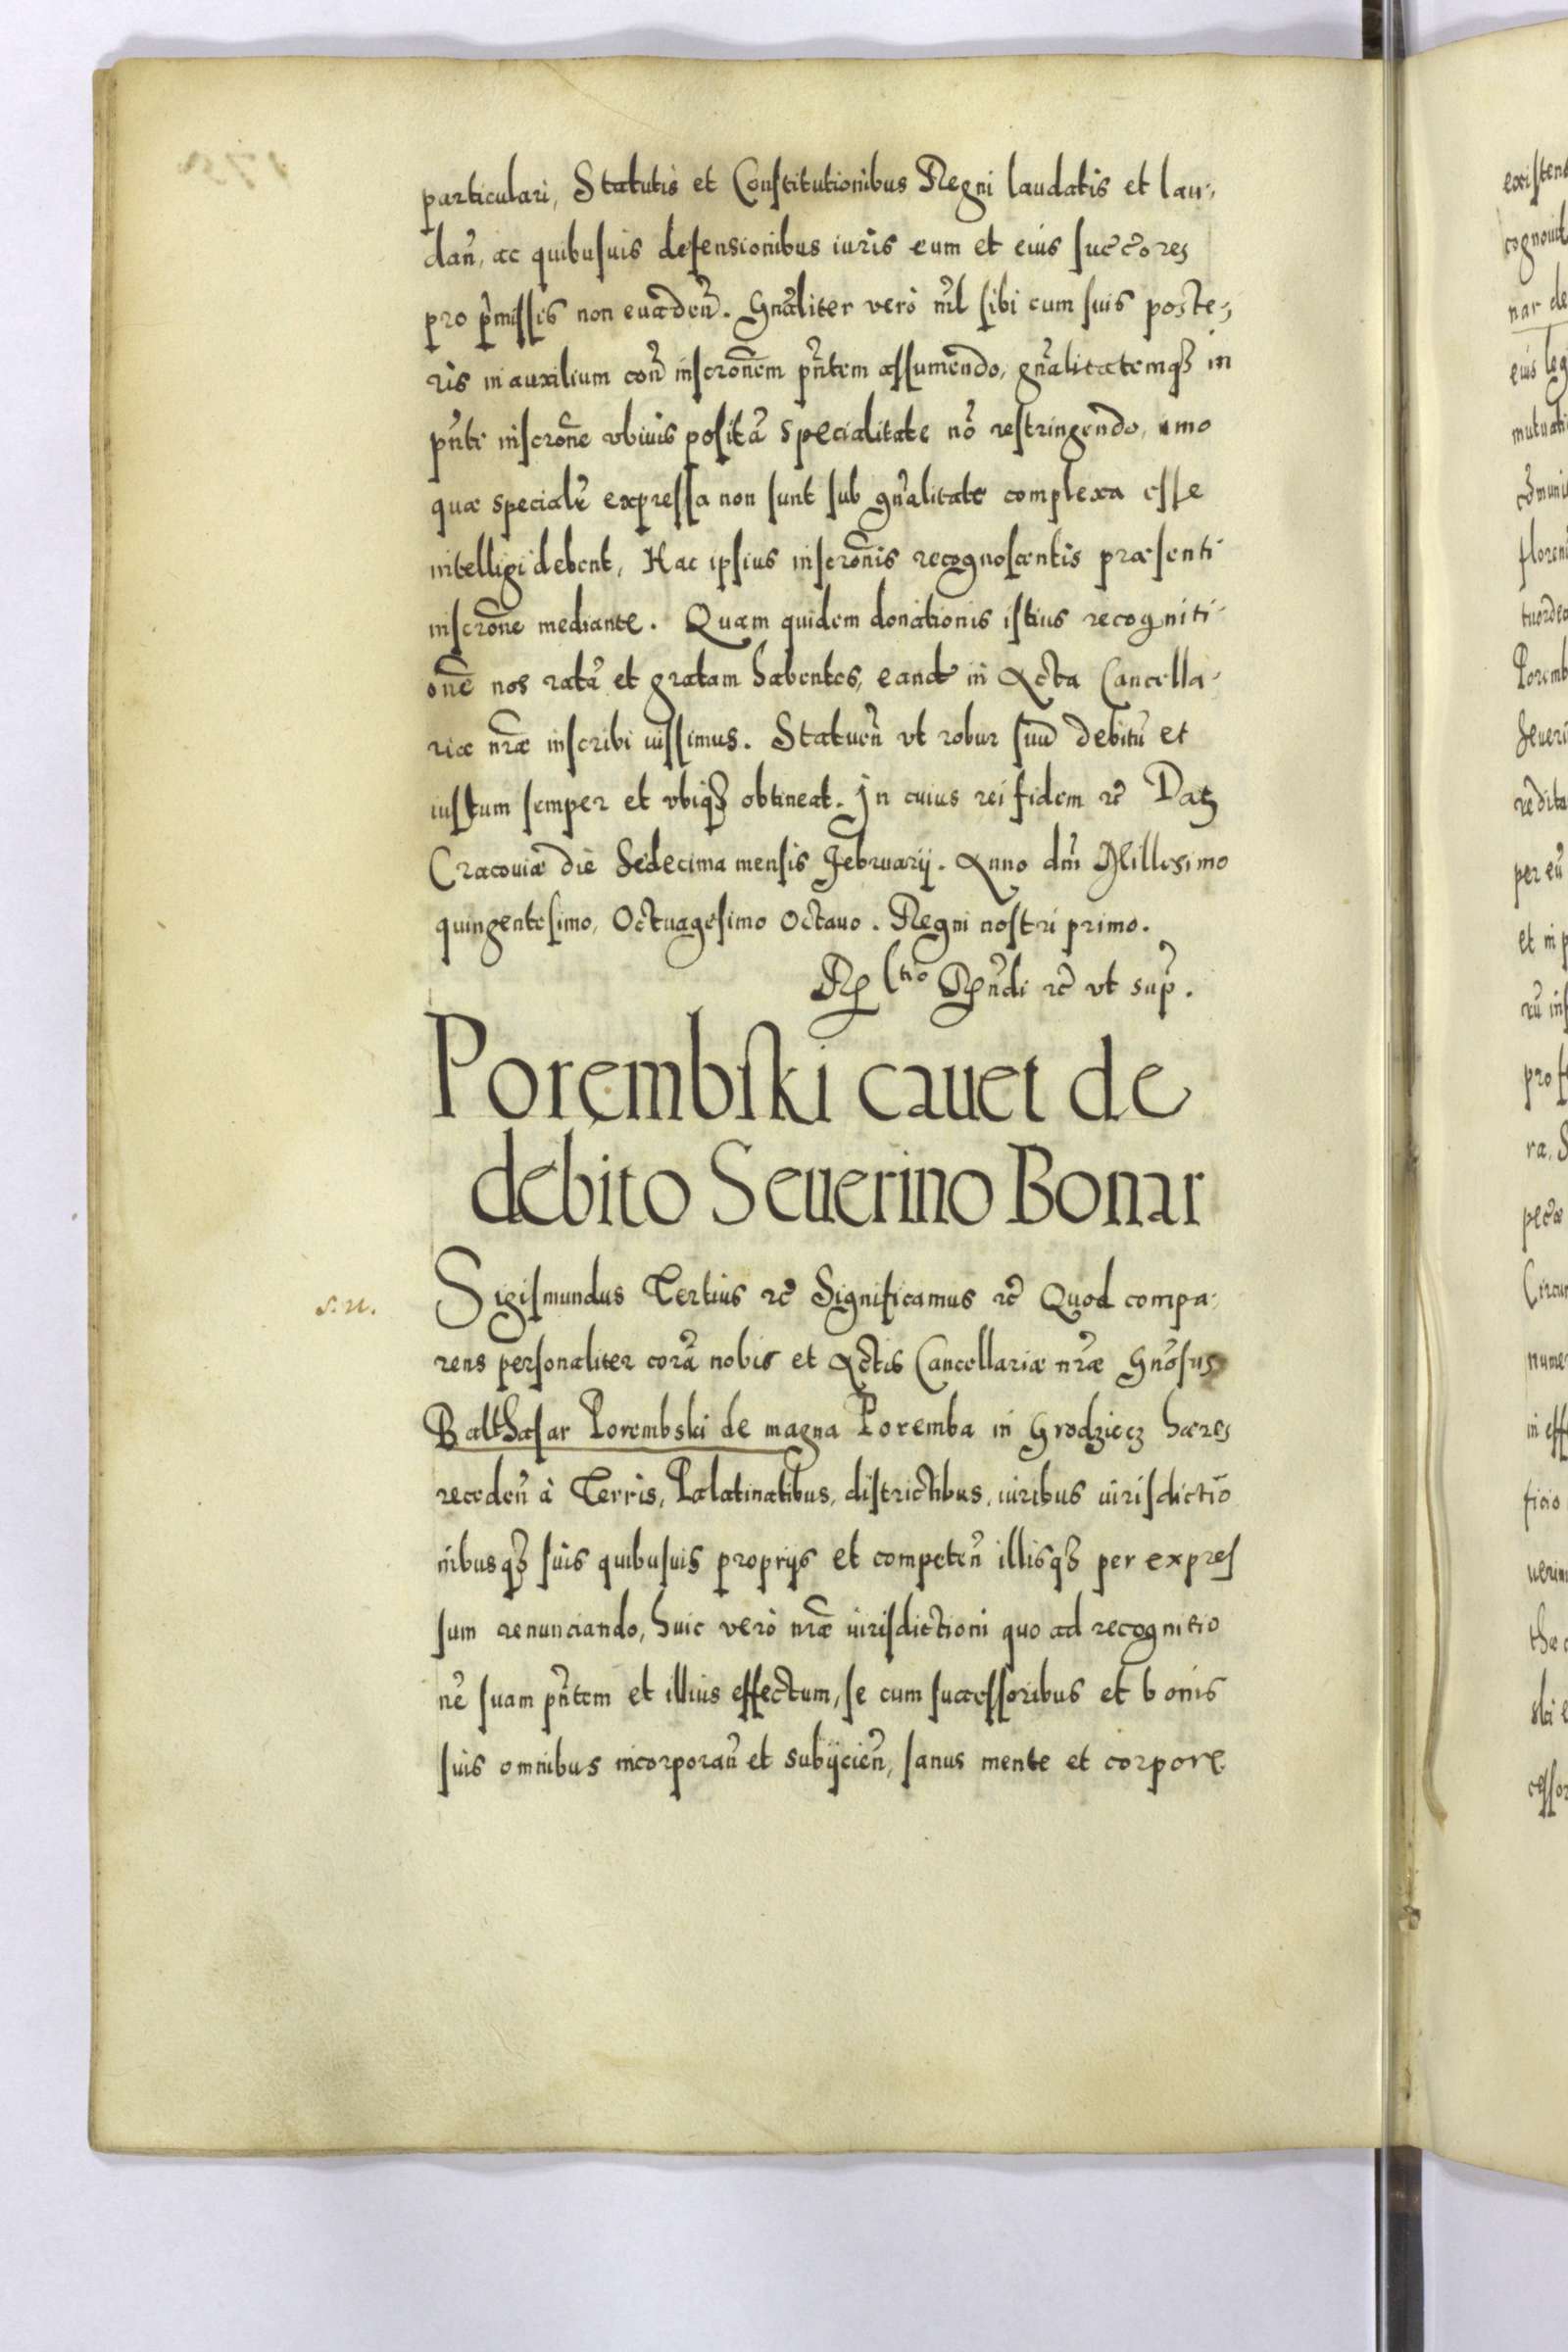 particulari, Statutis et Constitutionibus Regni laudatis et lau-
dan̄, ac quibusuis defensionibus iuris eum et eius succ̄ores
pro p̄missis non euaden̄. Gn̄aliter verò nīl sibi cum suis poste-
ris in auxilium con̄ inscrōnem pn̄tem assumendo, gn̄alitatemqꝫ in
pn̄ti inscrōne vbiuis positā specialitate nō restringendo, imo
quæ specialr̄ expressa non sunt sub gn̄alitate complexa esse
intelligi debent, Hac ipsius inscrōnis recognoscentis præsenti
inscrōne mediante. Quam quidem donationis istius recogniti-
onē nos ratā et gratam habentes, eand in Acta Cancella-
riæ nr̄æ inscribi iussimus. Statuen̄ vt robur suū debitū et
iustum semper et vbiqꝫ obtineat. In cuius rei fidem ꝛc̄ Datꝫ
Cracouiæ die Sedecima mensis February. Anno dn̄i Millesimo
quingentesimo, Octuagesimo Octauo. Regni nostri primo.
Rꝑ ltio Rꝑn̄di ꝛc̄ vt sup̄.
Porembski cauet de
debito Seuerino Bonar
s. n.
Sigismundus Tertius ꝛc̄ Significamus ꝛc̄ Quod compa-
rens personaliter corā nobis et Actis Cancellariæ nr̄æ Gn̄osus
Balthasar Porembski de magna Poremba in Grodziecz hæres
receden̄ à Terris, Palatinatibus, districtibus, iuribus iurisdictio
nibusqꝫ suis quibusuis proprijs et competen̄ illisqꝫ per expres
sum renunciando, huic verò nr̄æ iurisdictioni quo ad recognitio
nē suam pn̄tem et illius effectum, se cum successoribus et bonis
suis omnibus incorporan̄ et subijcien̄, sanus mente et corpore